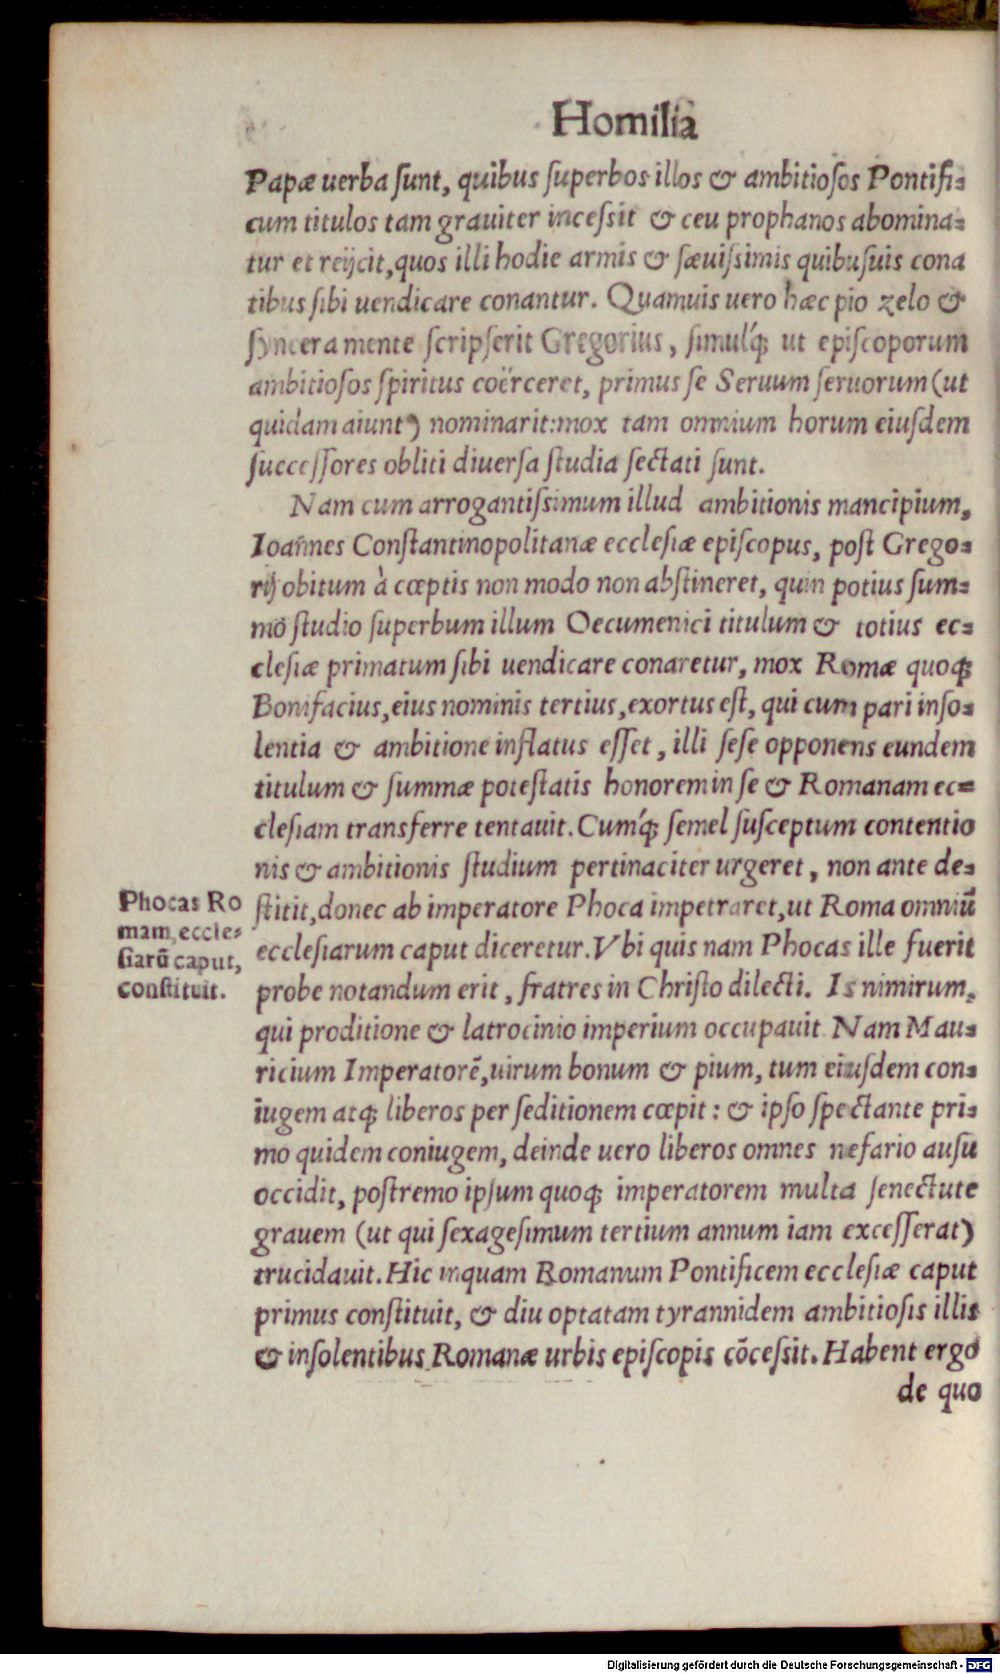 Homilia
Papæ uerba ſunt, quibus ſuperbos illos & ambitioſos Pontifi-
cum titulos tam grauiter inceſsit & ceu prophanos abomina-
tur et reijcit, quos illi hodie armis & ſæuiſsimis quibuſuis cona
tibus ſibi uendicare conantur. Quamuis uero hæc pio zelo &
ſyncera mente ſcripſerit Gregorius, ſimulq́; ut epiſcoporum
ambitioſos ſpiritus coërceret, primus ſe Seruum ſeruorum (ut
quidam aiunt) nominarit: mox tam omnium horum eiuſdem
ſucceſſores obliti diuerſa ſtudia ſectati ſunt.
Nam cum arrogantiſsimum illud ambitionis mancipium,
Ioannes Conſtantinopolitanæ eccleſiæ epiſcopus, poſt Grego-
rij obitum à cœptis non modo non abſtineret, quin potius ſum-
mo ſtudio ſuperbum illum Oecumenici titulum & totius ec-
cleſiæ primatum ſibi uendicare conaretur, mox Romæ quoq;
Bonifacius, eius nominis tertius, exortus eſt, qui cum pari inſo-
lentia & ambitione inflatus eſſet, illi ſeſe opponens eundem
titulum & ſummæ poteſtatis honorem in ſe & Romanam ec-
cleſiam transferre tentauit. Cumq́; ſemel ſuſceptum contentio
nis & ambitionis ſtudium pertinaciter urgeret, non ante de-
ſtitit, donec ab imperatore Phoca impetraret, ut Roma omniū
eccleſiarum caput diceretur. Vbi quis nam Phocas ille fuerit
probe notandum erit, fratres in Chriſto dilecti. Is nimirum,
qui proditione & latrocinio imperium occupauit. Nam Mau-
ricium Imperatorē, uirum bonum & pium, tum eiuſdem con-
iugem atq; liberos per ſeditionem cœpit: & ipſo ſpectante pri-
mo quidem coniugem, deinde uero liberos omnes nefario auſu
occidit, poſtremo ipſum quoq; imperatorem multa ſenectute
grauem (ut qui ſexageſimum tertium annum iam exceſſerat)
trucidauit. Hic inquam Romanum Pontificem eccleſiæ caput
primus conſtituit, & diu optatam tyrannidem ambitioſis illis
& inſolentibus Romanæ urbis epiſcopis cōceſsit. Habent ergo
de quo
Phocas Ro
mam, eccle-
ſiarū caput,
conſtituit.
Digitalisierung gefördert durch die Deutsche Forschungsgemeinschaft - DFG